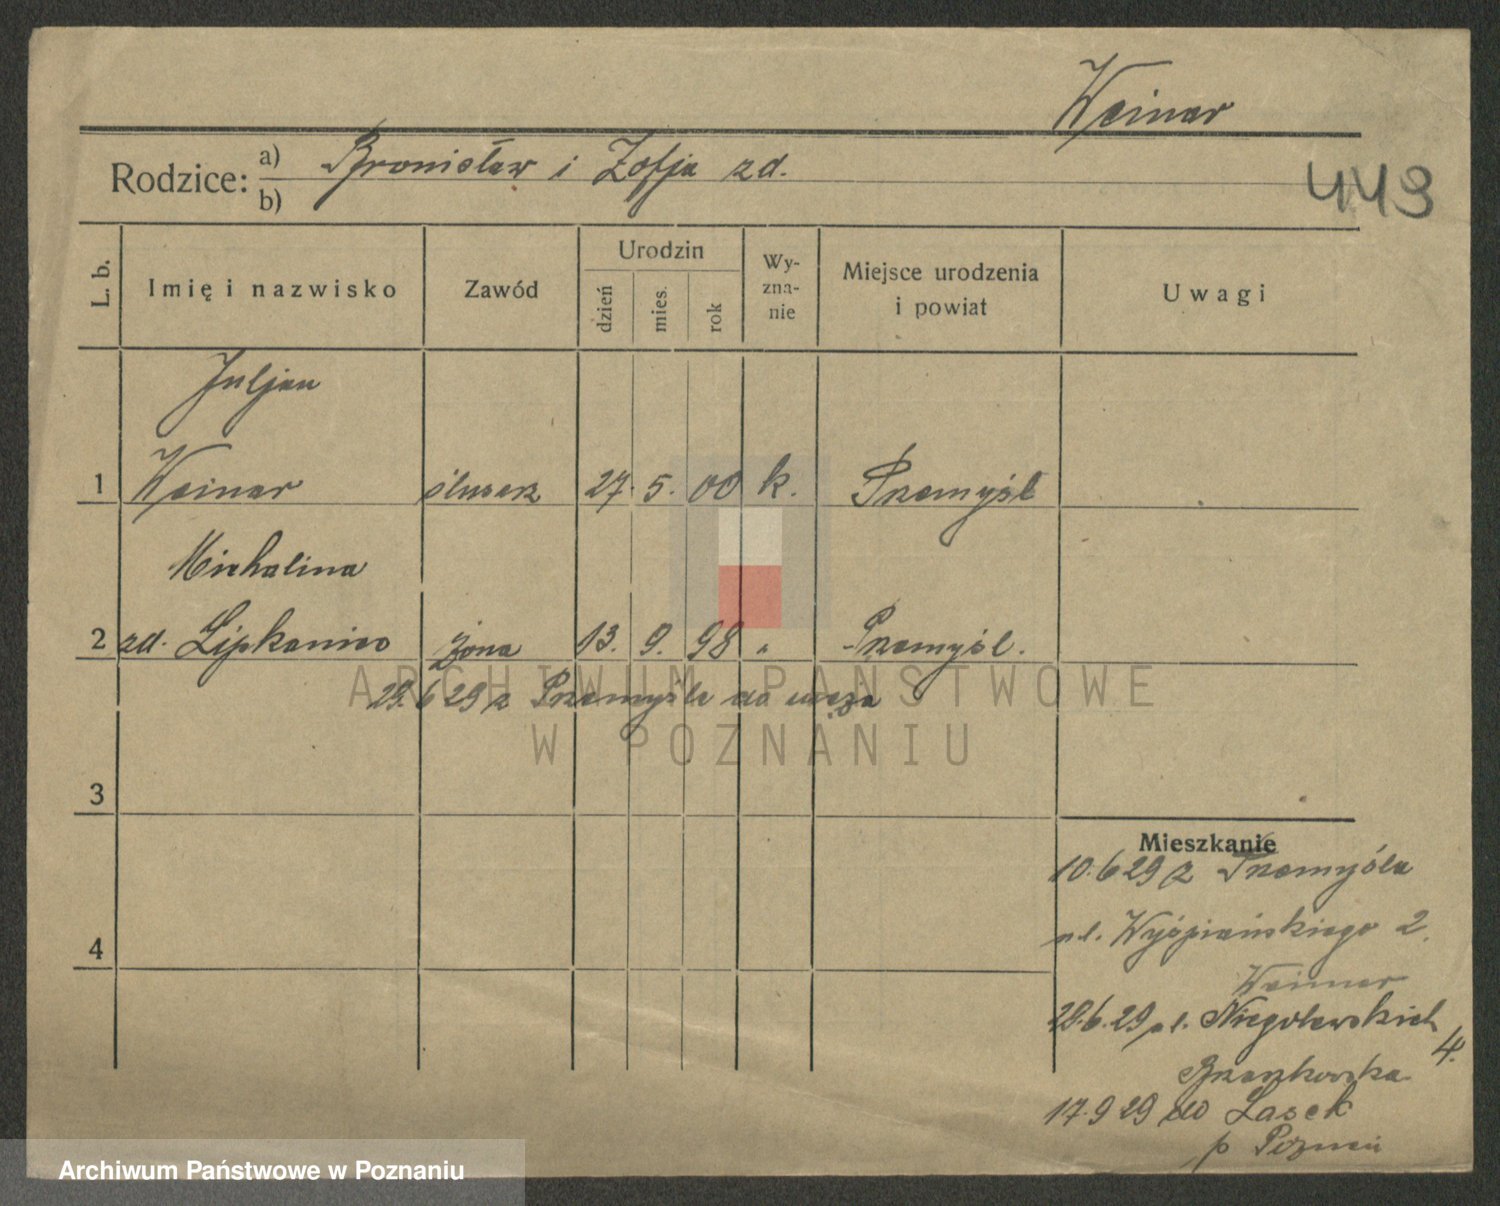 Weinar
Rodzice: a) Bronisław i Zofja zd.
b)
443
L. b. Imię i nazwisko Zawód Urodzin dzień mies. rok Wyznanie Miejsce urodzenia i powiat Uwagi
Juljan
1 Weinar ślusarz 27. 5. 00 k. Przemyśl
Michalina
2 zd. Lipkaniec żona 13. 9. 98 " Przemyśl.
28.6 29 z Przemyśla do męża
3
Mieszkanie
10.6 29 z Przemyśla
4
ul. Wyśpiańskiego 2.
Weimar
28.6.29 ul. Niegolewskich 4.
17.9 29 do Lasek
p Poznań
ARCHIWUM PAŃSTWOWE
W POZNANIU
Archiwum Państwowe w Poznaniu